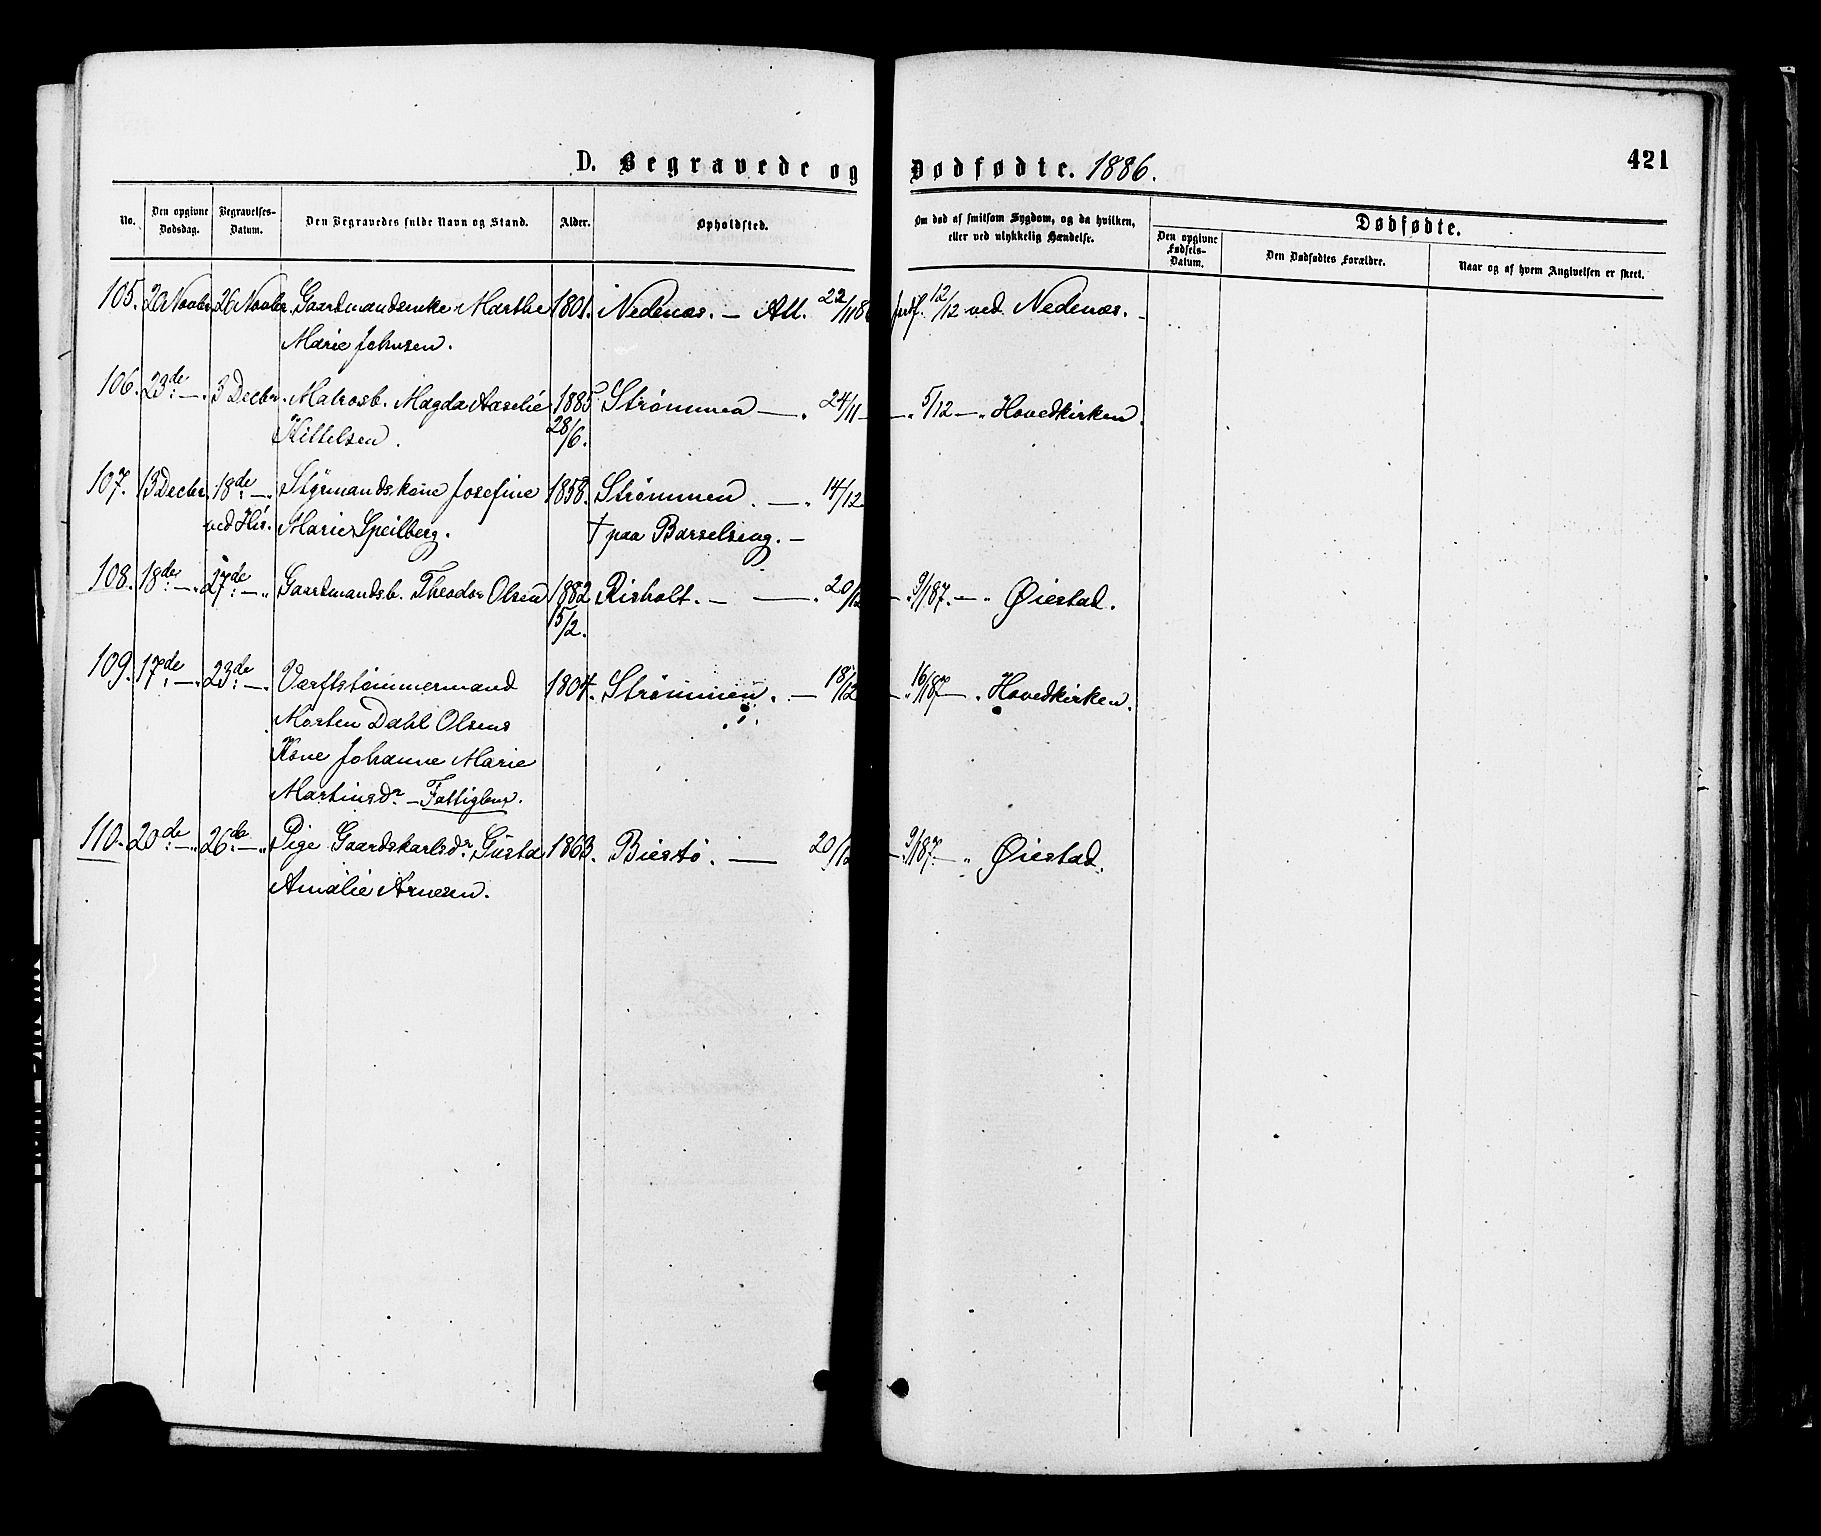 D. Begravede og Dødfødte. 1886.
421
No.
Den opgivne Dødsdag.
Begravelses-Datum.
Den Begravedes fulde Navn og Stand.
Alder.
Opholdsted.
Om død af smitsom Sygdom, og da hvilken, eller ved ulykkelig Hændelse.
Dødfødte.
Den opgivne Fødsels-Datum.
Den Dødfødtes Forældre.
Naar og af hvem Angivelsen er skeet.
105. 20 Novbr. 26 Novbr. Gaardmandsenke Marthe 1801. Nedenæs. — Att. 22/11 86 jordf. 12/12 ved Nedenæs.
Marie Johnsen.
106. 23de — 3 Decbr. Matrosb. Magda Aaselie 1885 Strømmen — „ 24/11 — „ 5/12 — „ Hovedkirken.
Kittelsen. 28/6.
107. 13 Decbr. 18de — Styrmandskone Josefine 1858. Strømmen. — „ 14/12
ved His. Marie Speilberg. † paa Barselseng. —
108. 18de — „ 27de — „ Gaardmandsb. Theodor Olsen 1882 Risholt. — — „ 20/12 — „ 9/1 87. — „ Øiestad.
15/2.
109. 17de — „ 23de — „ Værftstømmermand 1804. Strømmen. — 18/12 — „ 16/1 87 — „ Hovedkirken.
Morten Dahl Olsens
Kone Johanne Marie
Martinsdr — Fattiglem.
110. 20de — „ 26de — „ Pige Gaardskarlsdr. Gusta 1863. Biestø. — 20/12 — „ 9/1 87 — „ Øiestad.
Amalie Arnesen.